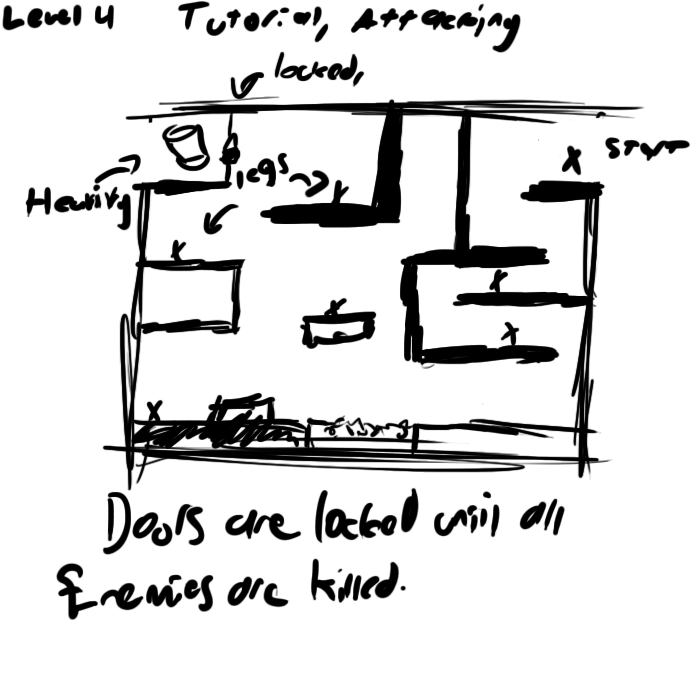 Level 4 Tutorial, Attacking
locked,
START
legs
Heavity
Doors are locked until all
Enemies are killed.